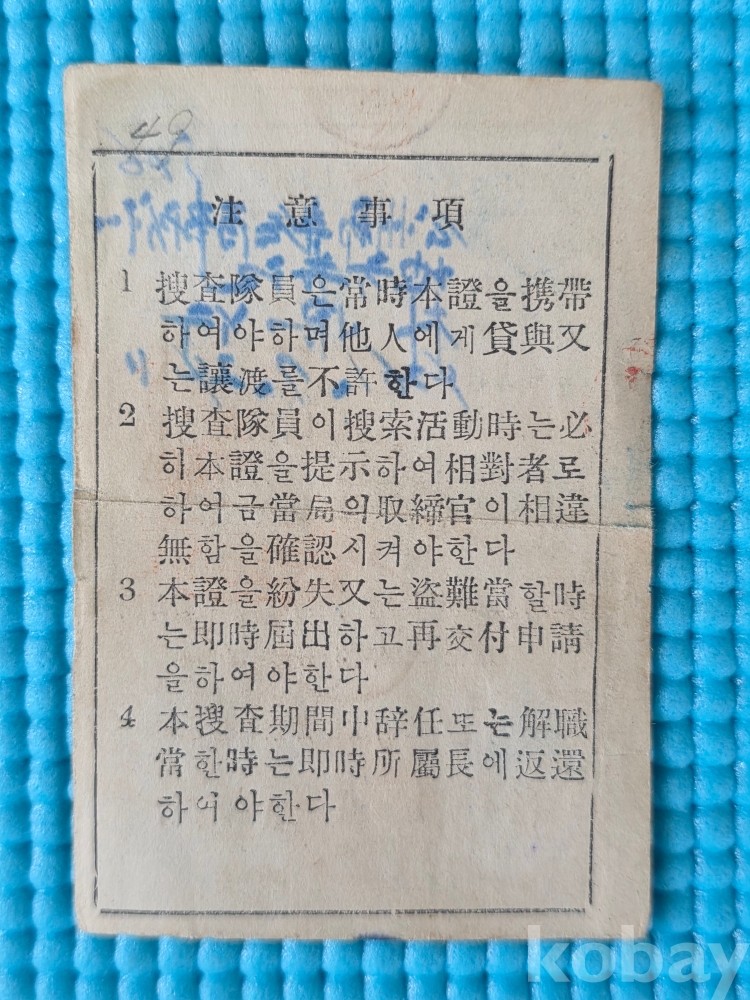 49
注意事項
1 搜査隊員은常時本證을携帶
하여야하며他人에게貸與又
는讓渡를不許한다
2 搜査隊員이搜索活動時는必
히本證을提示하여相對者로
하여금當局의取締官이相違
無함을確認시켜야한다
3 本證을紛失又는盜難當할時
는即時屆出하고再交付申請
을하여야한다
4 本搜査期間中辞任또는解職
當한時는即時所屬長에返還
하여야한다
kobay